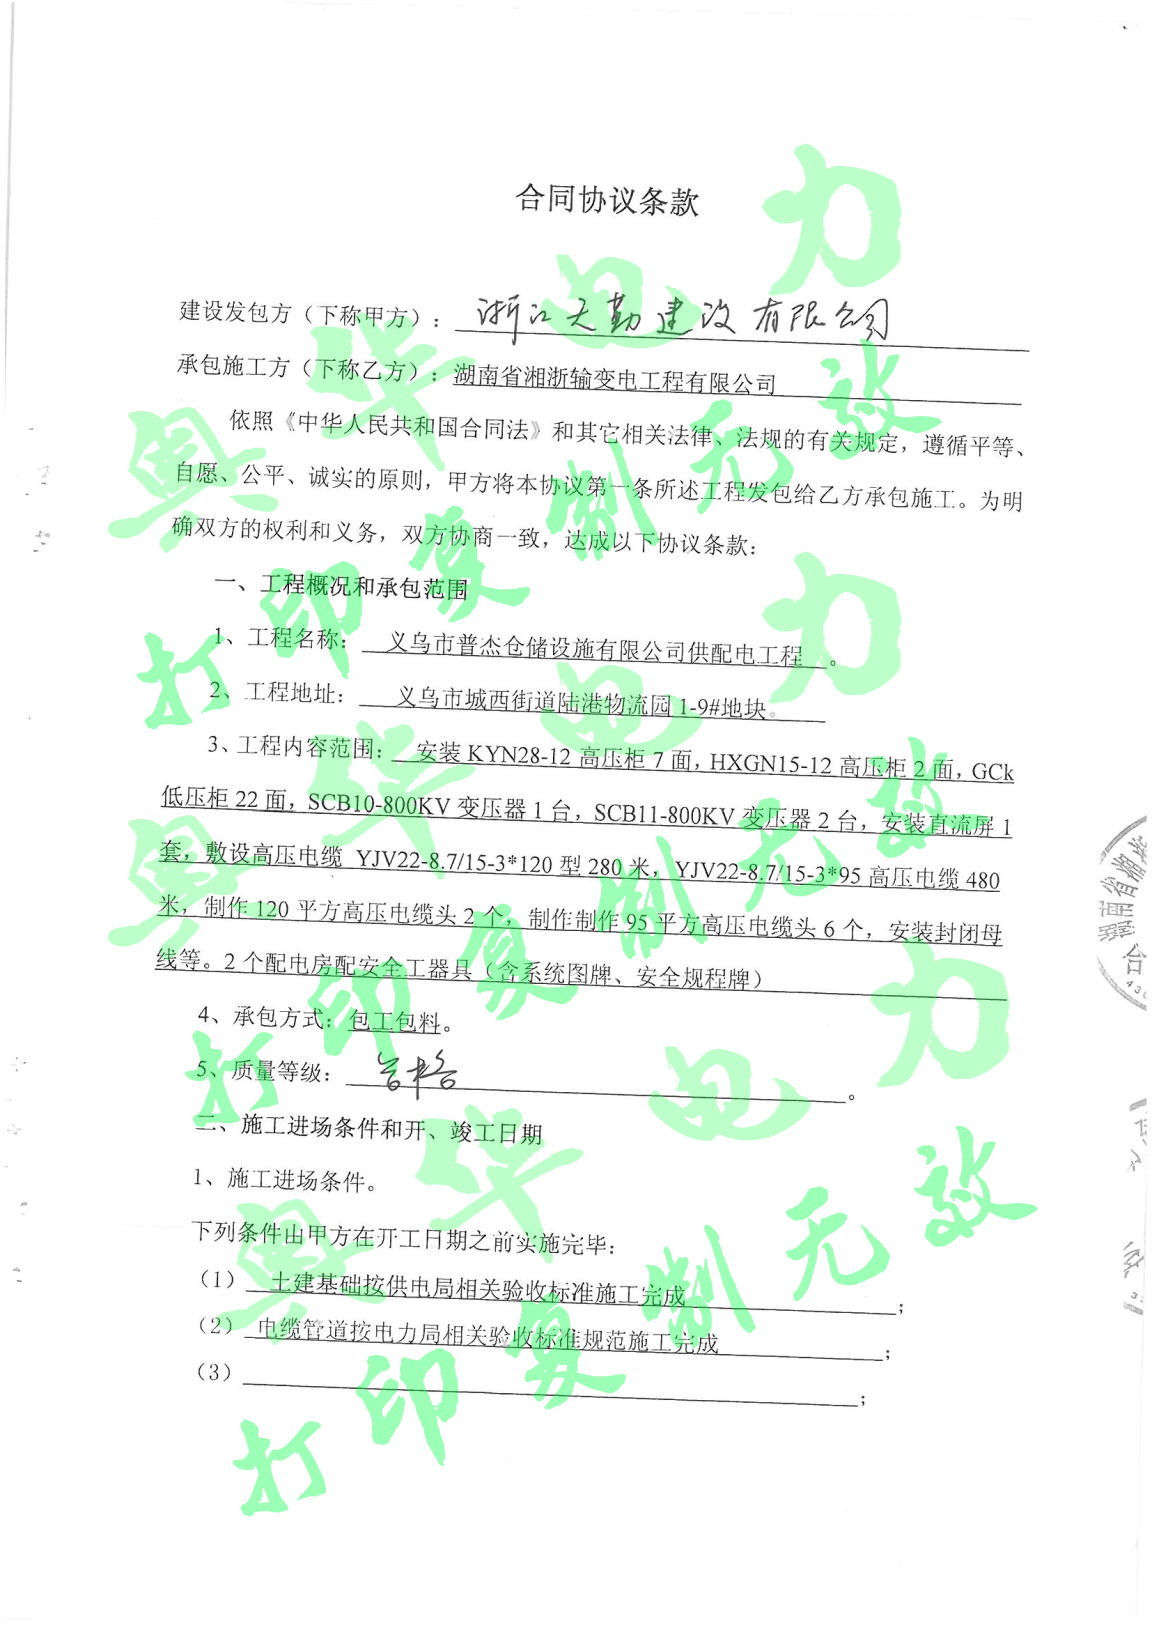 合同协议条款
建设发包方（下称甲方）：浙江天勤建设有限公司
承包施工方（下称乙方）：湖南省湘浙输变电工程有限公司
依照《中华人民共和国合同法》和其它相关法律、法规的有关规定，遵循平等、
自愿、公平、诚实的原则，甲方将本协议第一条所述工程发包给乙方承包施工。为明
确双方的权利和义务，双方协商一致，达成以下协议条款：
一、工程概况和承包范围
1、工程名称：义乌市普杰仓储设施有限公司供配电工程。
2、工程地址：义乌市城西街道陆港物流园 1-9#地块。
3、工程内容范围：安装 KYN28-12 高压柜 7 面，HXGN15-12 高压柜 2 面，GCk
低压柜 22 面，SCB10-800KV 变压器 1 台，SCB11-800KV 变压器 2 台，安装直流屏 1
套，敷设高压电缆 YJV22-8.7/15-3*120 型 280 米，YJV22-8.7/15-3*95 高压电缆 480
米，制作 120 平方高压电缆头 2 个，制作制作 95 平方高压电缆头 6 个，安装封闭母
线等。2 个配电房配安全工器具（含系统图牌、安全规程牌）
4、承包方式：包工包料。
5、质量等级：合格。
二、施工进场条件和开、竣工日期
1、施工进场条件。
下列条件由甲方在开工日期之前实施完毕：
（1）土建基础按供电局相关验收标准施工完成；
（2）电缆管道按电力局相关验收标准规范施工完成；
（3）；
奥华电力
打印复制无效
奥华电力
打印复制无效
奥华电力
打印复制无效
湖南省湘
合
430